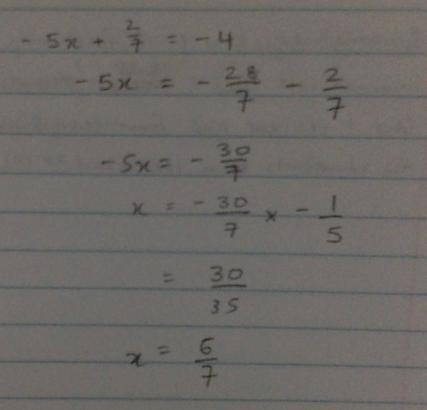 - 5x + 2/7 = - 4
- 5x = - 28/7 - 2/7
- 5x = - 30/7
x = - 30/7 × - 1/5
= 30/35
x = 6/7